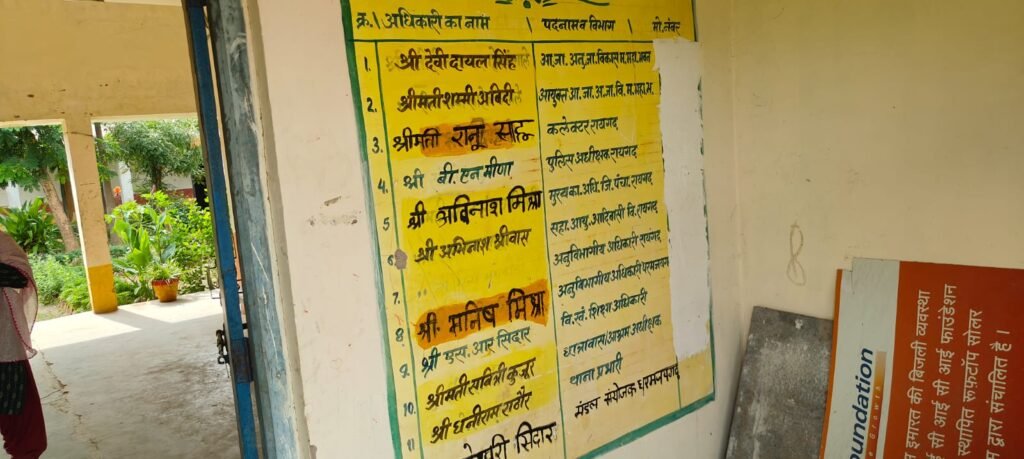 क्र. अधिकारी का नाम पदनाम व विभाग मो. नंबर
1. श्री देवी दायल सिंह आ.जा. अनु.जा. विकास म.
2. श्रीमती शम्मी अबिदी आयुक्त आ.जा. अ.जा. वि. म.
3. श्रीमती रानू साहू कलेक्टर रायगढ़
4. श्री बी. एन मीणा पुलिस अधीक्षक रायगढ़
5 श्री अविनाश मिश्रा मुख्य का. अधि. जि. पंचा. रायगढ़
6 श्री अभिनाश श्रीवास सहा. आयु. आदिवासी वि. रायगढ़
7. " अनुविभागीय अधिकारी रायगढ़
8 श्री. मनिष मिश्रा अनुविभागीय अधिकारी
9. श्री एस. आर सिदार वि. खं. शिक्षा अधिकारी
10. श्रीमती सवित्री कुजूर छात्रावास/आश्रम अधीक्षक
11 श्री धनीराम राठौर थाना प्रभारी
सिदार मंडल संयोजक धरमजयगढ़
oundation
इमारत की बिजली व्यवस्था
सी आई सी आई फाउंडेशन
स्थापित रूफटॉप सोलर
द्वारा संचालित है।